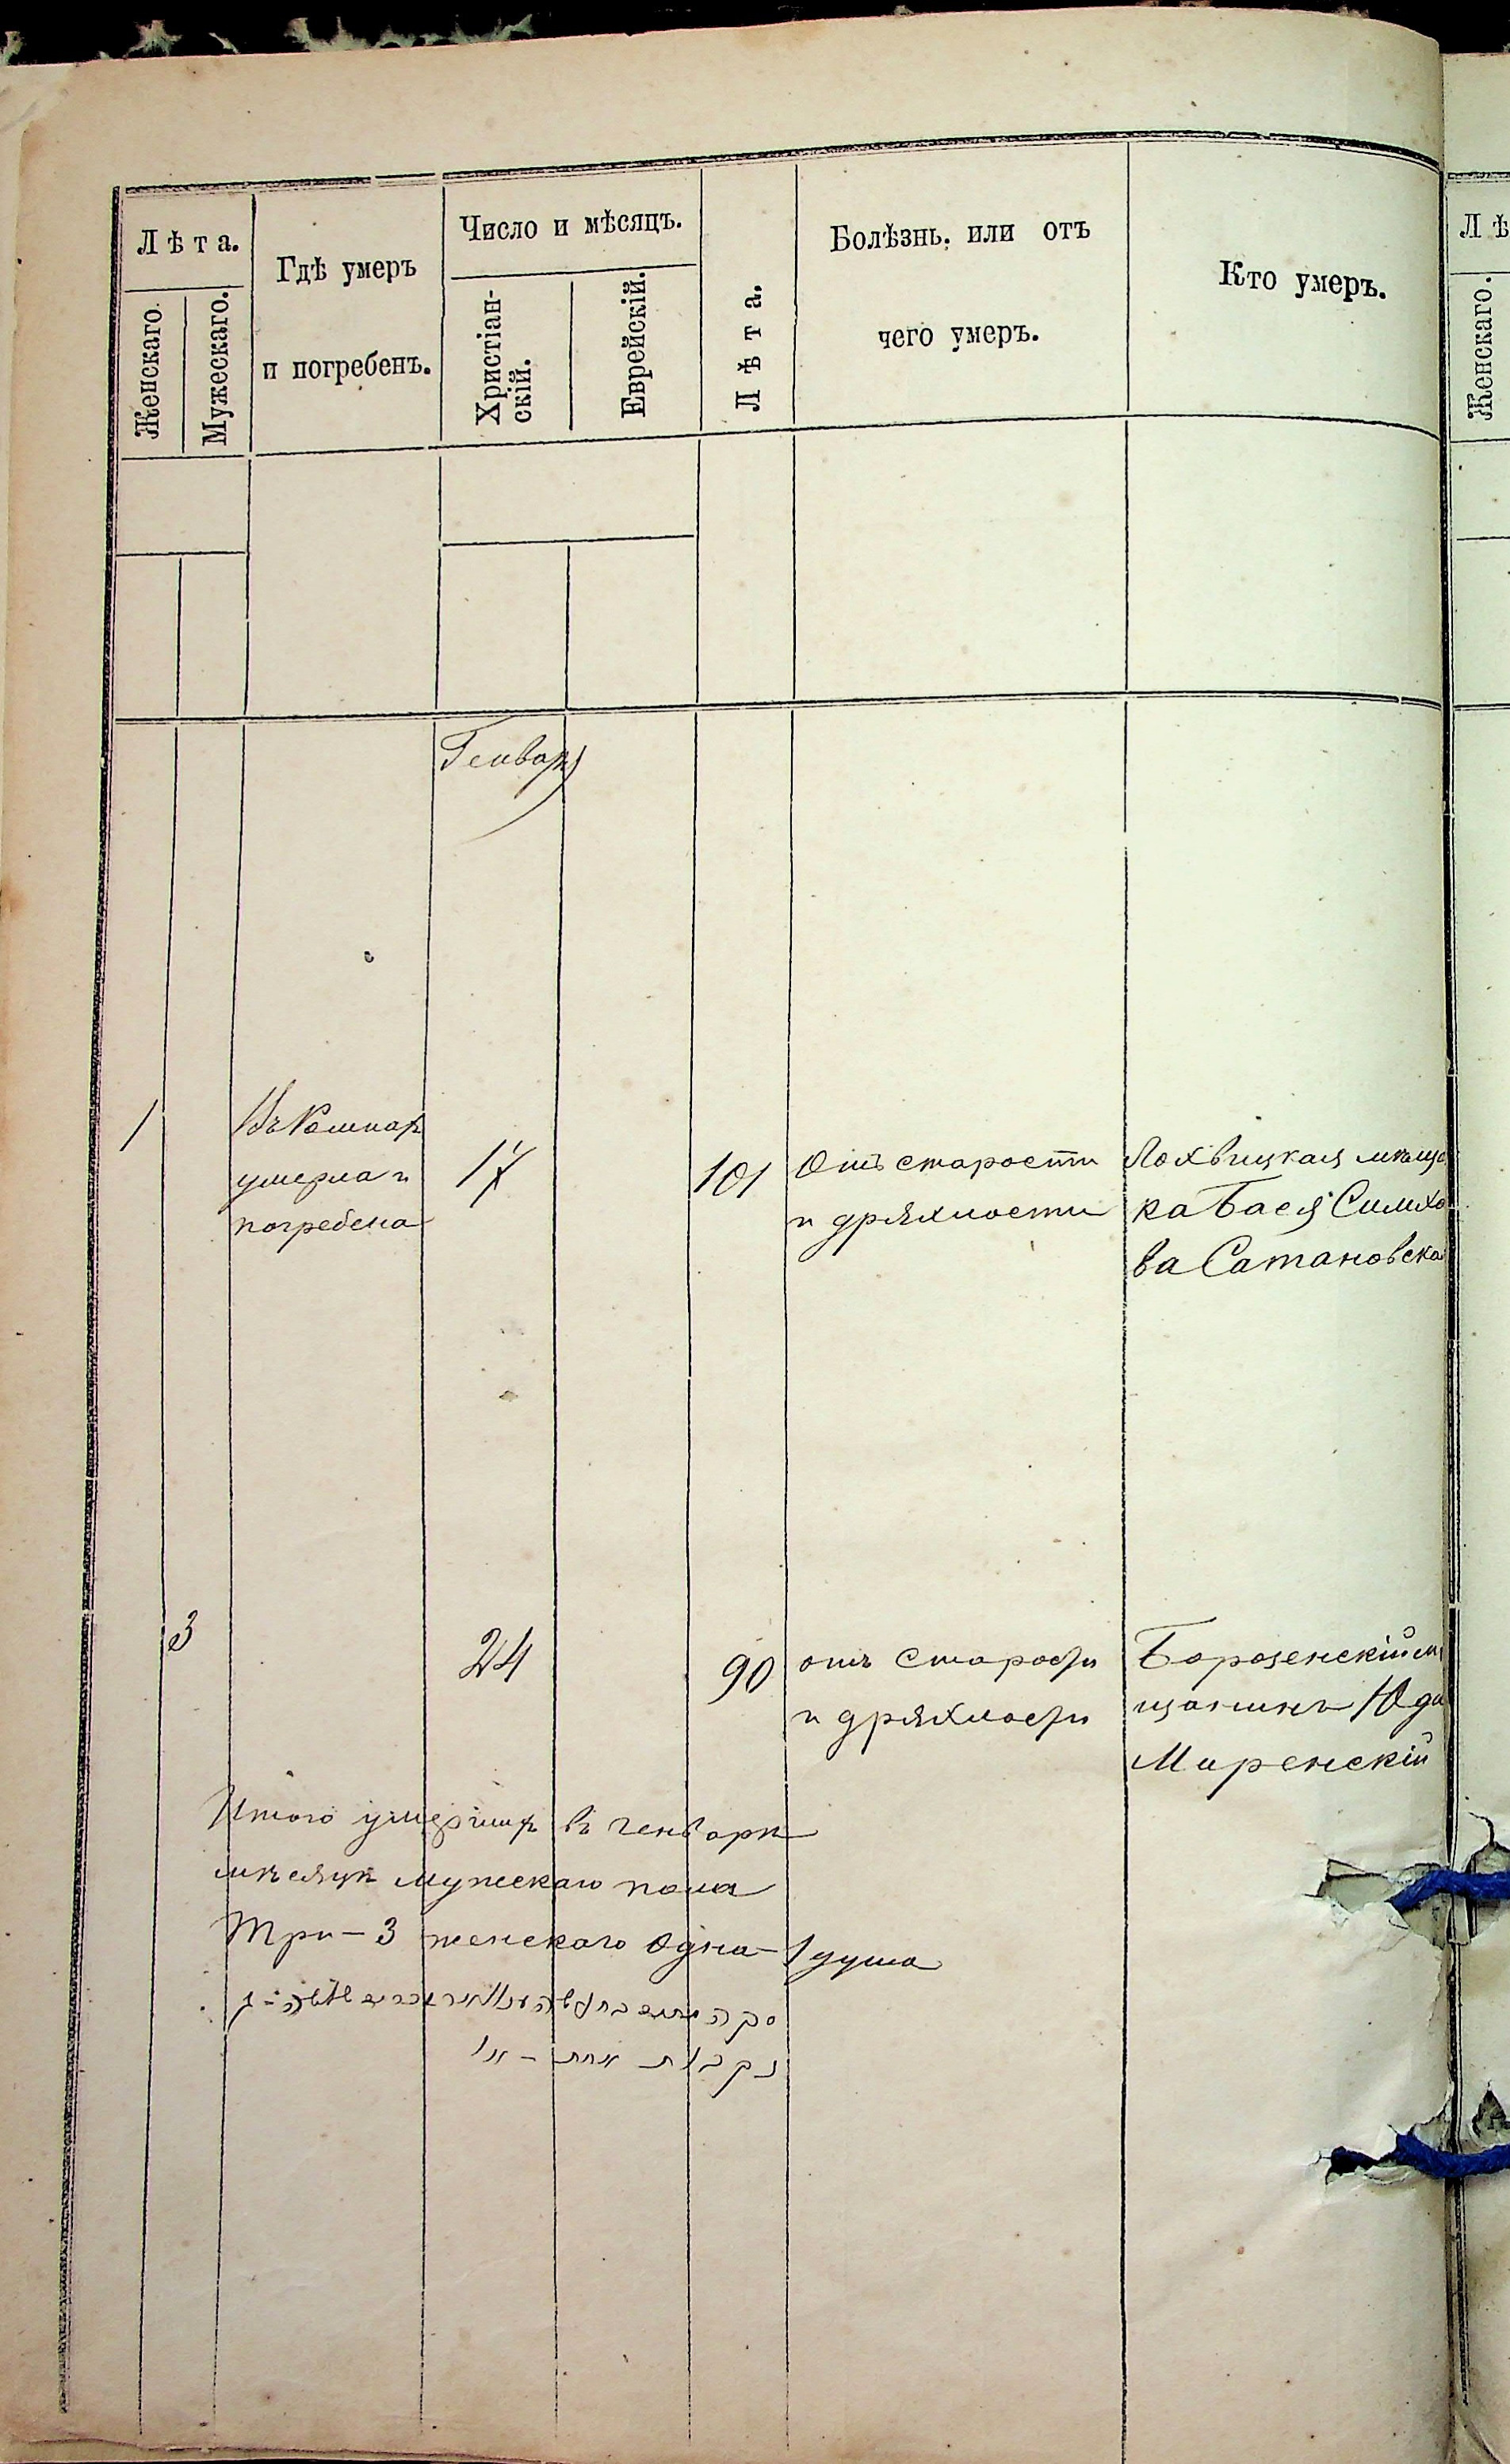 Лѣта.
Женскаго.
Мужескаго.
Гдѣ умеръ
и погребенъ.
Число и мѣсяцъ.
Христіан-
скій.
Еврейскій.
Лѣта.
Болѣзнь, или отъ
чего умеръ.
Кто умеръ.
Лѣ
Женскаго.
Генварь
1
умерла и
погребена
17
101
Отъ старости
и дряхлости
Лохвицкая мѣща
ка Бася Симхо
ва Сатановска
3
24
90
отъ старости
и дряхлости
Борзенскій м
щанинъ Юда
Миренскій
Итого умершихъ въ генварѣ
мѣсяцѣ мужескаго пола
Три - 3 женскаго одна - 1 душа
סך
נקבות אחת - 1